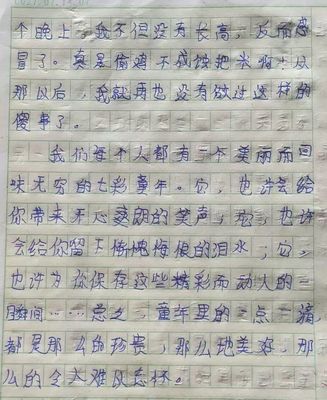 个晚上，我不但没有长高，反而感
冒了。真是偷鸡不成蚀把米啊！从
那以后，我就再也没有做过这样的
傻事了。
我们每个人都有一个美丽而回
味无穷的七彩童年。它，也许会给
你带来开心爽朗的笑声；它，也许
会给你留下惭愧悔恨的泪水；它，
也许为你保存这些精彩而动人的一
瞬间……总之，童年里的一点一滴，
都是那么的珍贵，那么地美好，那
么的令人难以忘怀。